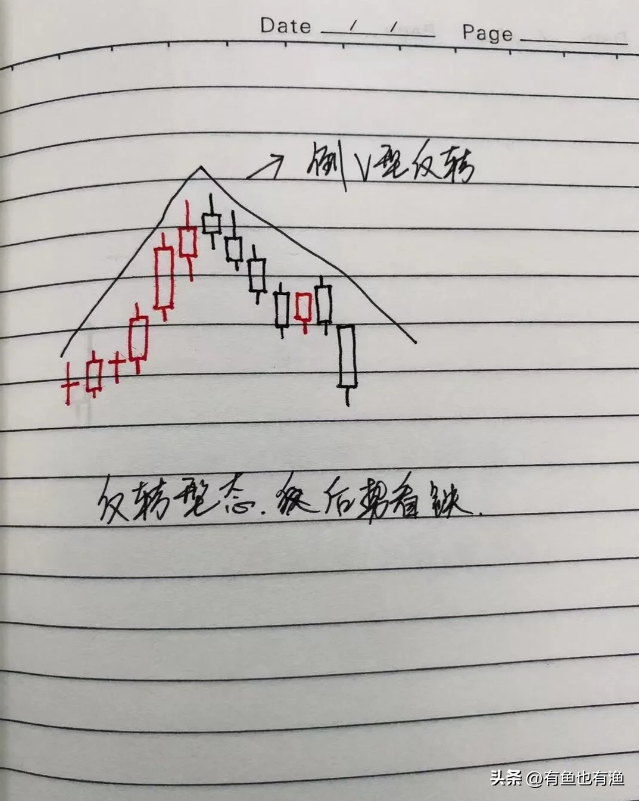 Date / / Page
倒V型反转
反转型态.
后势看跌.
头条 @有鱼也有渔